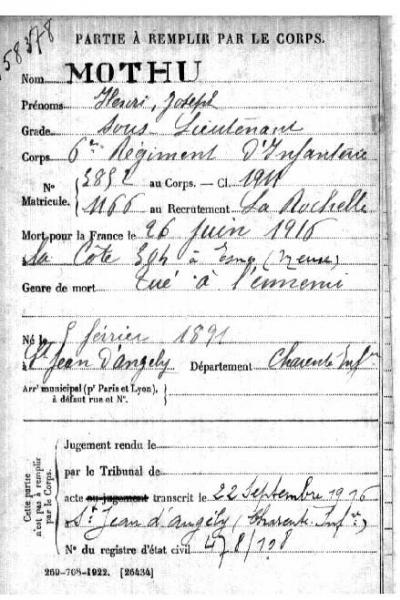 58378
PARTIE À REMPLIR PAR LE CORPS.
Nom MOTHU
Prénoms Henri, Joseph
Grade Sous-Lieutenant
Corps 6e Régiment d'Infanterie
N° Matricule. { 3852 au Corps. — Cl. 1911
1166 au Recrutement La Rochelle
Mort pour la France le 26 juin 1916
à la Côte 304 à Esnes (Meuse)
Genre de mort tué à l'ennemi
Né le 5 février 1891
à St Jean d'angely Département Charente Infre
Arrt municipal (pr Paris et Lyon), à défaut rue et N°. }
Cette partie n'est pas à remplir par le Corps.
Jugement rendu le
par le Tribunal de
acte ou jugement transcrit le 22 Septembre 1916
à St Jean d'angély (Charente-Infre)
N° du registre d'état civil 478/128
269-708-1922. [26434]